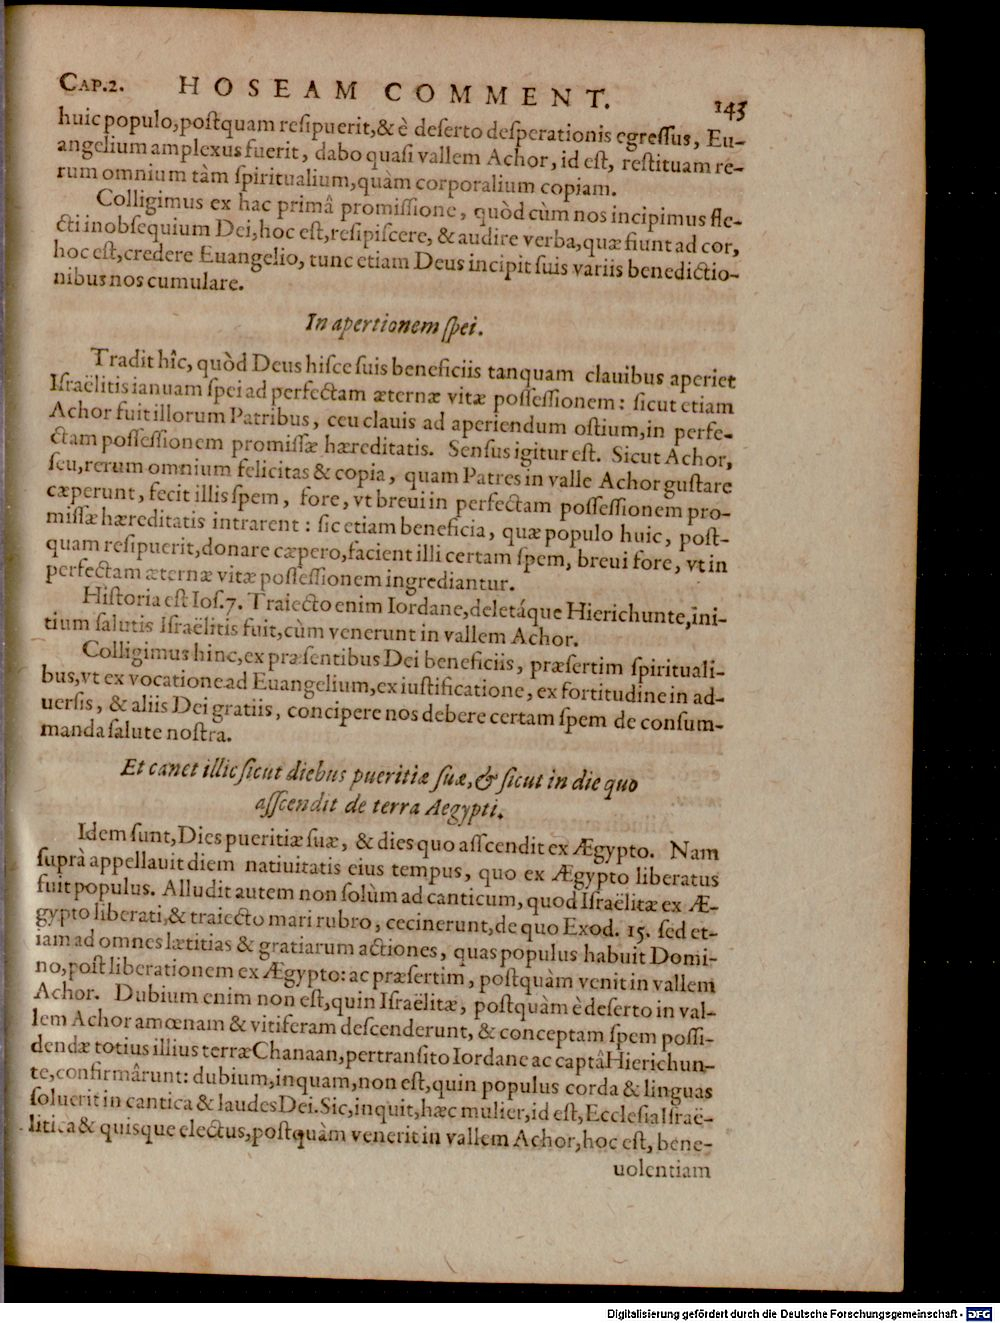 CAP.2. HOSEAM COMMENT. 143
huic populo, postquam resipuerit, & è deserto desperationis egressus, Eu-
angelium amplexus fuerit, dabo quasi vallem Achor, id est, restituam re-
rum omnium tàm spiritualium, quàm corporalium copiam.
Colligimus ex hac primâ promissione, quòd cùm nos incipimus fle-
cti in obsequium Dei, hoc est, resipiscere, & audire verba, quæ fiunt ad cor,
hoc est, credere Euangelio, tunc etiam Deus incipit suis variis benedictio-
nibus nos cumulare.
In apertionem spei.
Tradit hîc, quòd Deus hisce suis beneficiis tanquam clauibus aperiet
Israëlitis ianuam spei ad perfectam æternæ vitæ possessionem: sicut etiam
Achor fuit illorum Patribus, ceu clauis ad aperiendum ostium, in perfe-
ctam possessionem promissæ hæreditatis. Sensus igitur est. Sicut Achor,
seu, rerum omnium felicitas & copia, quam Patres in valle Achor gustare
cæperunt, fecit illis spem, fore, vt breui in perfectam possessionem pro-
missæ hæreditatis intrarent: sic etiam beneficia, quæ populo huic, post-
quam resipuerit, donare cæpero, facient illi certam spem, breui fore, vt in
perfectam æternæ vitæ possessionem ingrediantur.
Historia est Ios. 7. Traiecto enim Iordane, deletáque Hierichunte, ini-
tium salutis Israëlitis fuit, cùm venerunt in vallem Achor.
Colligimus hinc, ex præsentibus Dei beneficiis, præsertim spirituali-
bus, vt ex vocatione ad Euangelium, ex iustificatione, ex fortitudine in ad-
uersis, & aliis Dei gratiis, concipere nos debere certam spem de consum-
manda salute nostra.
Et canet illic sicut diebus pueritiæ suæ, & sicut in die quo
asscendit de terra Aegypti.
Idem sunt, Dies pueritiæ suæ, & dies quo asscendit ex Ægypto. Nam
suprà appellauit diem natiuitatis eius tempus, quo ex Ægypto liberatus
fuit populus. Alludit autem non solùm ad canticum, quod Israëlitæ ex Æ-
gypto liberati, & traiecto mari rubro, cecinerunt, de quo Exod. 15. sed et-
iam ad omnes lætitias & gratiarum actiones, quas populus habuit Domi-
no, post liberationem ex Ægypto: ac præsertim, postquàm venit in vallem
Achor. Dubium enim non est, quin Israëlitæ, postquàm è deserto in val-
lem Achor amœnam & vitiferam descenderunt, & conceptam spem possi-
dendæ totius illius terræ Chanaan, pertransito Iordane ac captâ Hierichun-
te, confirmârunt: dubium, inquam, non est, quin populus corda & linguas
soluerit in cantica & laudes Dei. Sic, inquit, hæc mulier, id est, Ecclesia Israë-
litica & quisque electus, postquàm venerit in vallem Achor, hoc est, bene-
uolentiam
Digitalisierung gefördert durch die Deutsche Forschungsgemeinschaft - DFG